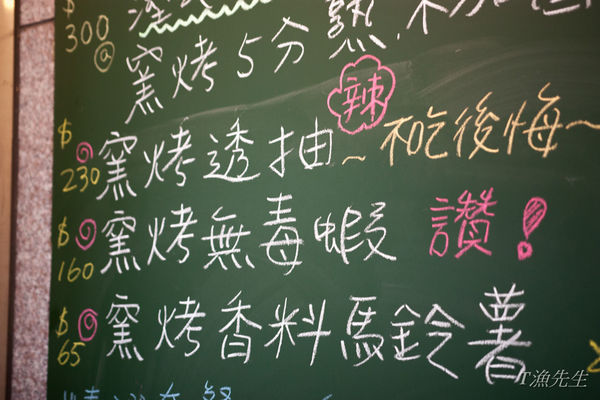 $300
窯烤5分熟,不
辣
$230 窯烤透抽~不吃後悔~
$160 窯烤無毒蝦 讚!
$65 窯烤香料馬鈴薯
T漁先生